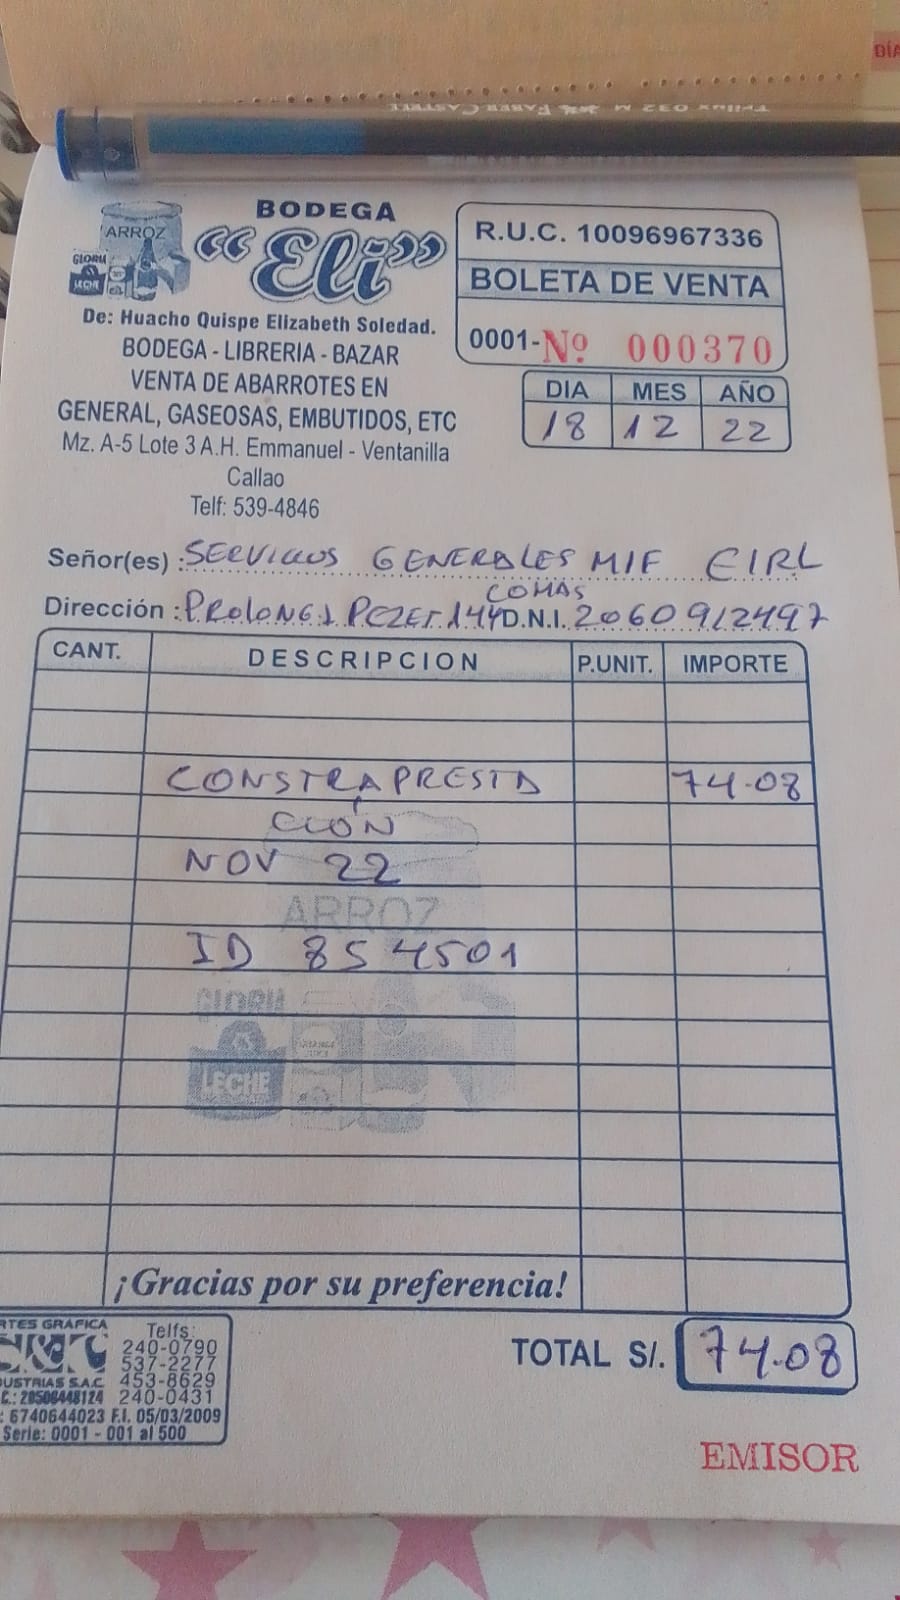 DÍA
Trilux 032 M FABER-CASTELL
ARROZ
GLORIA
LECHE
BODEGA
"Eli"
De: Huacho Quispe Elizabeth Soledad.
BODEGA - LIBRERIA - BAZAR
VENTA DE ABARROTES EN
GENERAL, GASEOSAS, EMBUTIDOS, ETC
Mz. A-5 Lote 3 A.H. Emmanuel - Ventanilla
Callao
Telf: 539-4846
R.U.C. 10096967336
BOLETA DE VENTA
0001-Nº 000370
DIA MES AÑO
18 12 22
Señor(es) : SERVICIOS GENERALES MIF EIRL
COMAS
Dirección : PROLONG. PEZET 144 D.N.I. 2060912497
CANT. DESCRIPCION P.UNIT. IMPORTE
CONSTRAPRESTA 74.08
CIÓN
NOV 22
ARROZ
ID 854501
GLORIA
LECHE
¡Gracias por su preferencia!
TOTAL S/. 74.08
RTES GRAFICA
S&K
DUSTRIAS S.A.C.
C.: 20506448124
Telfs:
240-0790
537-2277
453-8629
240-0431
: 6740644023 F.I. 05/03/2009
Serie: 0001 - 001 al 500
EMISOR